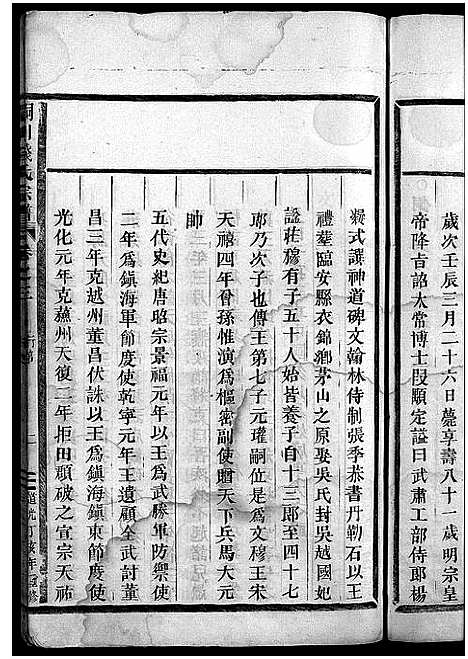 歲次壬辰三月二十六日薨享壽八十一歲明宗皇
帝降旨詔太常博士段顒定謚曰武肅工部侍郎楊
凝式譔神道碑文翰林侍制張季恭書丹勒石以王
禮葬臨安縣衣錦鄉茅山之原娶吳氏封吳越國妃
謚莊穆有子五十人始皆養子自十三郎至四十七
郎乃次子也傳王第七子元瓘嗣位是為文穆王宋
天禧四年曾孫惟演為樞密副使贈天下兵馬大元
帥
五代史紀唐昭宗景福元年以王為武勝軍防禦使
二年為鎮海軍節度使乾寧元年王遺顧全武討董
昌三年克越州董昌伏誅以王為鎮海鎮東節度使
光化元年克蘇州天復二年拒田頵破之宣宗天祐
川錢氏宗譜
行第
二
道光丁亥年重修